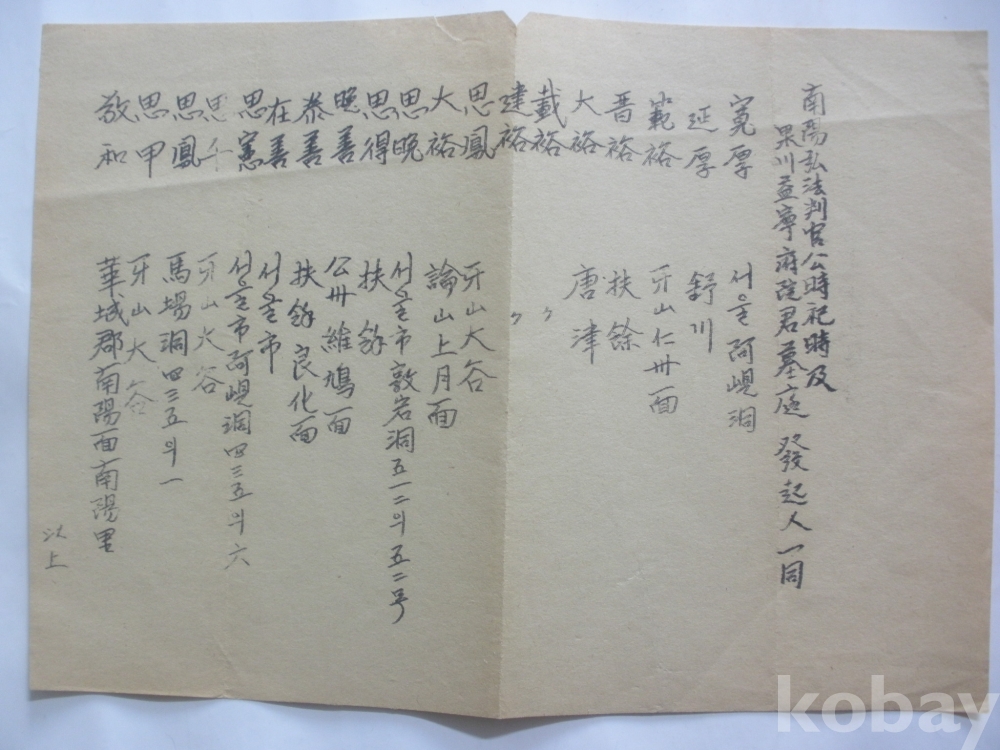 南陽弘法判官公時祀時及
果川益寧府院君墓庭 發起人一同
寬厚 서울 阿峴洞
延厚 舒川
範裕 牙山仁州面
晋裕 扶餘
大裕 唐津
載裕 〃
建裕 〃
思鳳 牙山大谷
大裕 論山上月面
思晩 서울市敦岩洞五一二의五二号
思得 扶餘
晩善 公州維鳩面
泰善 扶餘良化面
在善 서울市
思憲 서울市阿峴洞四三五의六
思千 牙山大谷
思鳳 馬場洞四三五의一
思甲 牙山大谷
敎和 華城郡南陽面南陽里
以上
kobay